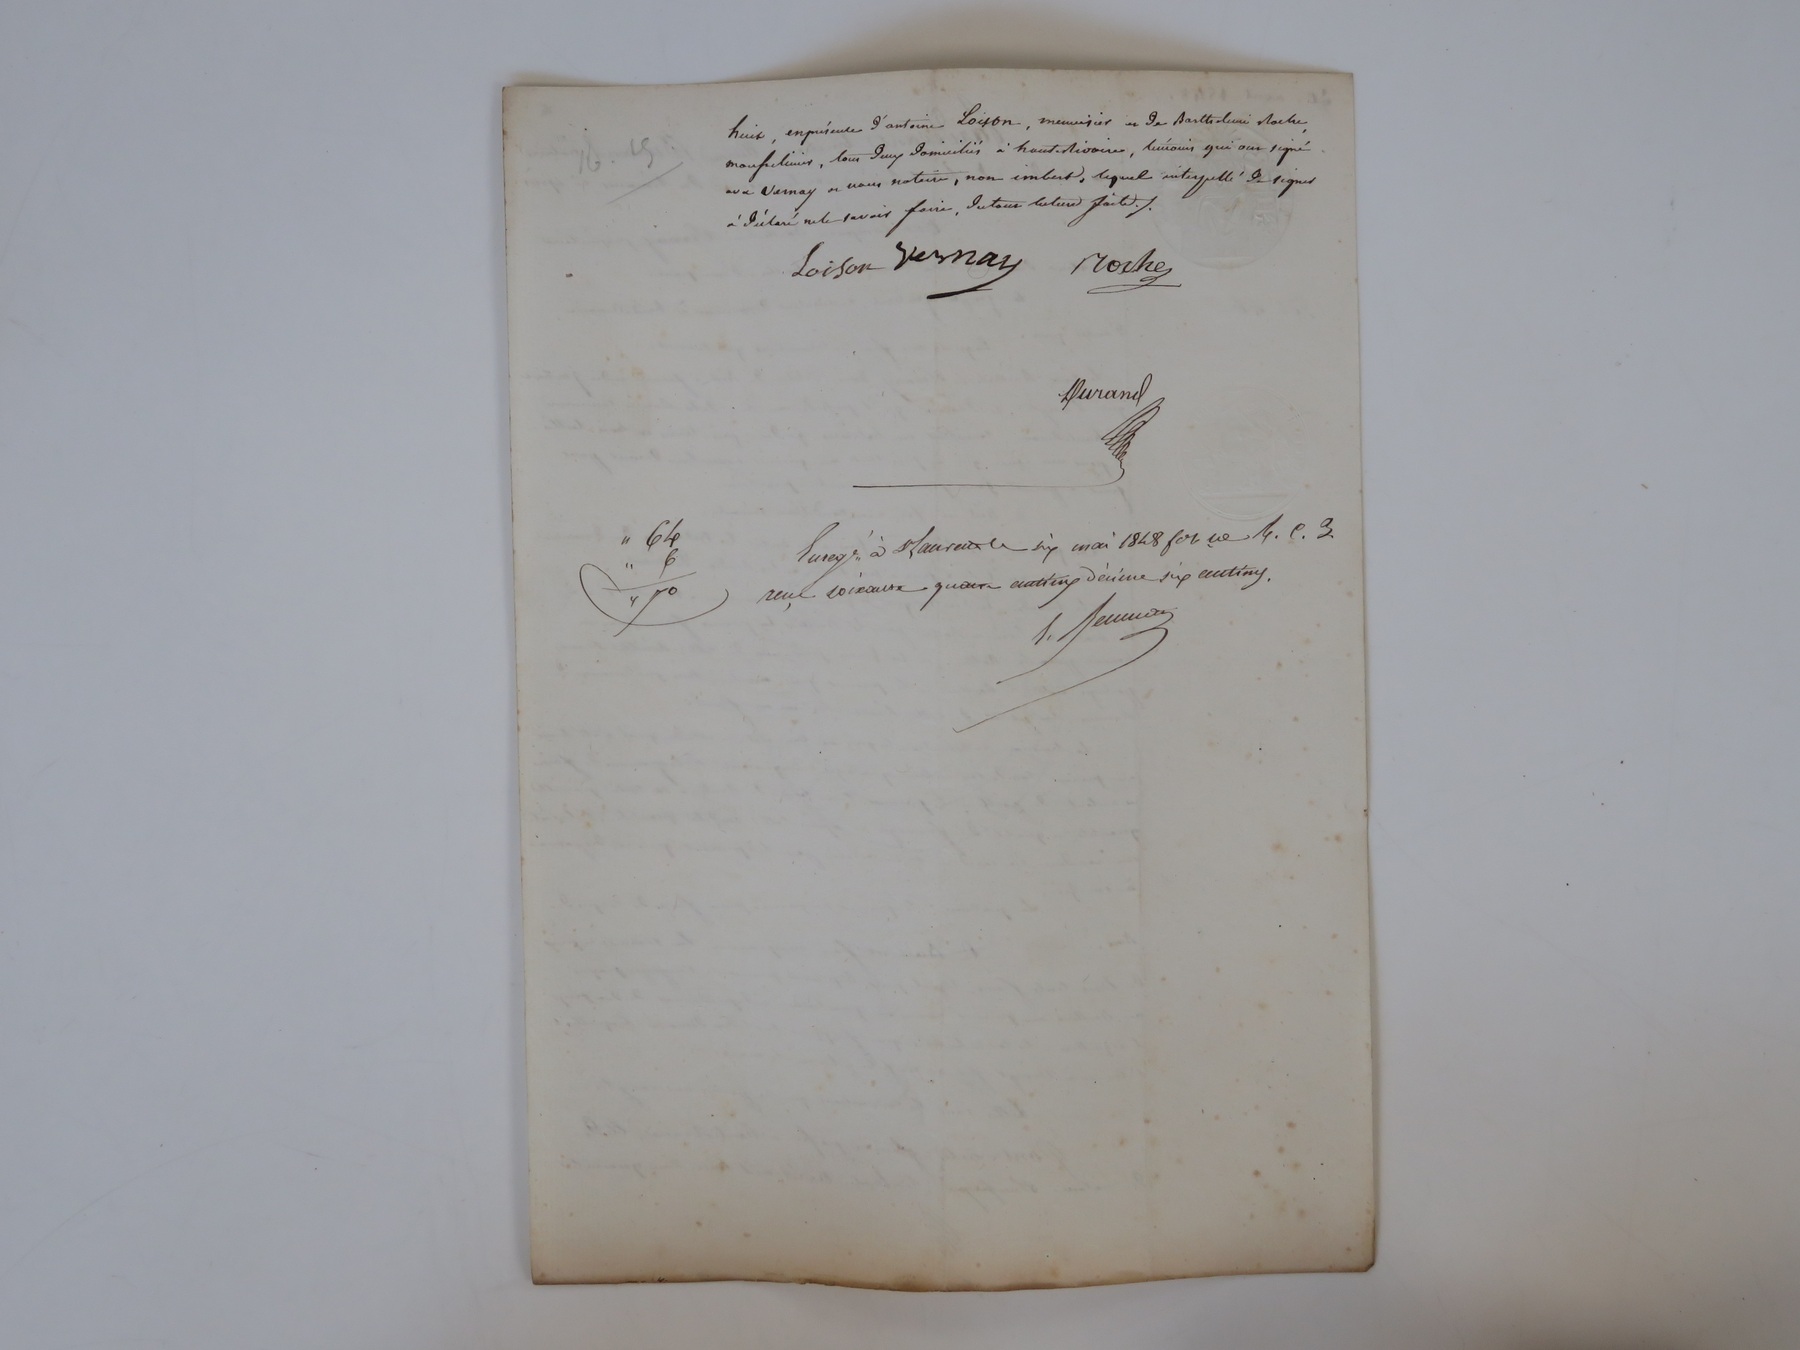 huit, en présence d'antoine Loison, menuisier et de Barthelemi Roche,
tous deux domiciliés à haute rivoire, témoins qui ont signé
avec Vernay et nous notaire, non imbert, lequel interpellé de signer
a déclaré ne le savoir faire, du tout lecture faite./.
Loison Vernay Roche
Durand
" 64
" 6
" 70
Enreg.é à St Laurent le six mai 1848 fol. c. 3
reçu soixante quatre centimes décime six centimes.